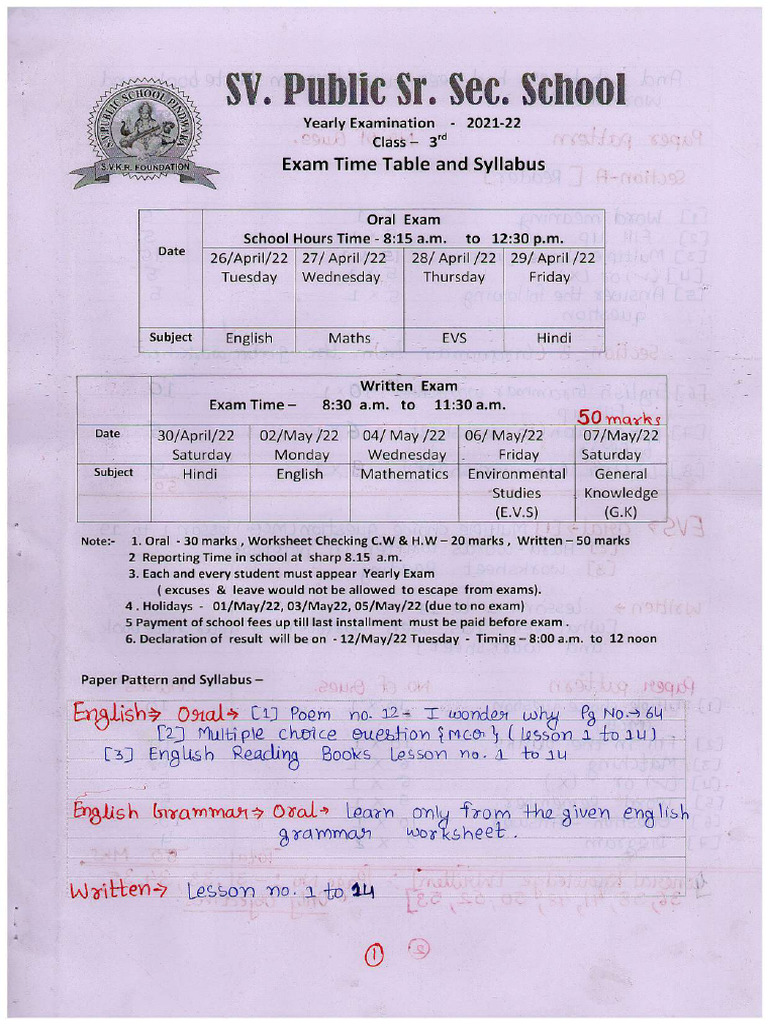 SV. Public Sr. Sec. School
S.V. PUBLIC SCHOOL PINDWARA
S.V.K.R. FOUNDATION
Yearly Examination - 2021-22
Class – 3rd
Exam Time Table and Syllabus
Date
Oral Exam
School Hours Time - 8:15 a.m. to 12:30 p.m.
26/April/22 27/ April /22 28/ April /22 29/ April /22
Tuesday Wednesday Thursday Friday
Subject English Maths EVS Hindi
Written Exam
Exam Time – 8:30 a.m. to 11:30 a.m.
50 marks
Date 30/April/22 02/May /22 04/ May /22 06/ May/22 07/May/22
Saturday Monday Wednesday Friday Saturday
Subject Hindi English Mathematics Environmental General
Studies Knowledge
(E.V.S) (G.K)
Note:- 1. Oral - 30 marks , Worksheet Checking C.W & H.W – 20 marks , Written – 50 marks
2 Reporting Time in school at sharp 8.15 a.m.
3. Each and every student must appear Yearly Exam
( excuses & leave would not be allowed to escape from exams).
4 . Holidays - 01/May/22, 03/May22, 05/May/22 (due to no exam)
5 Payment of school fees up till last installment must be paid before exam .
6. Declaration of result will be on - 12/May/22 Tuesday - Timing – 8:00 a.m. to 12 noon
Paper Pattern and Syllabus –
English→ Oral→ [1] Poem no. 12- I wonder why Pg No.→ 64
[2] Multiple choice Question {MCQ} (lesson 1 to 14)
[3] English Reading Books Lesson no. 1 to 14
English Grammar→ Oral→ Learn only from the given english
grammar worksheet.
Written→ Lesson no. 1 to 14
1